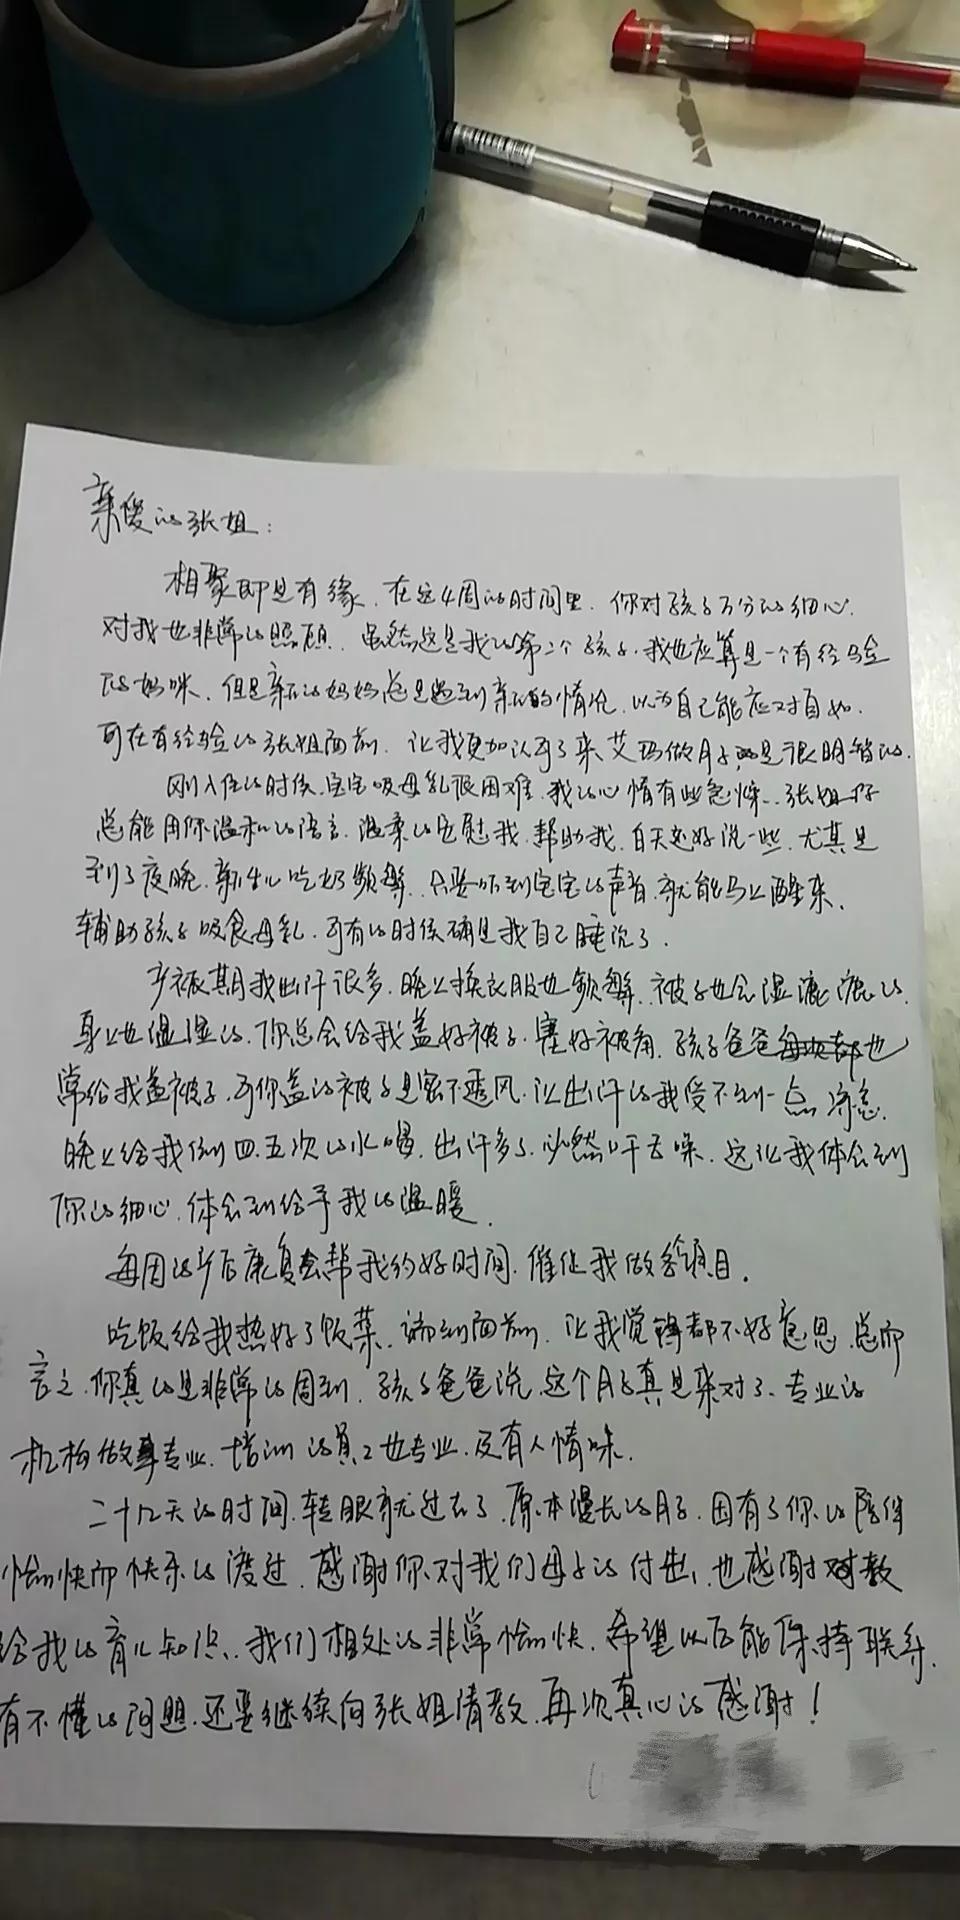 亲爱的张姐：
相聚即是有缘，在这4周的时间里，你对孩子万分的细心，
对我也非常的照顾，虽然这是我的第二个孩子，我也应算是一个有经验
的妈咪，但是新的妈妈总是遇到新的情况，以为自己能应对自如，
可在有经验的张姐面前，让我更加认可了来艾玛做月子是很明智的。
刚入住的时候，宝宝吸母乳很困难，我的心情有些急燥，张姐你
总能用你温和的语言，温柔的安慰我，帮助我，白天还好说一些，尤其是
到了夜晚，新生儿吃奶频繁，只要听到宝宝的声音，就能马上醒来，
辅助孩子吸食母乳，可有的时候确是我自己睡沉了。
产褥期我出汗很多，晚上换衣服也频繁，被子也会湿漉漉的，
身上也温湿的，你总会给我盖好被子，塞好被角，孩子爸爸也
常给我盖被子，可你盖的被子是密不透风，让出汗的我受不到一点凉意，
晚上给我倒四、五次的水喝，出汗多了，必然口干舌噪，这让我体会到
你的细心，体会到给予我的温暖。
每周的产后康复会帮我约好时间，催促我做各项目。
吃饭给我热好了饭菜，端到面前，让我觉得都不好意思，总而
言之，你真的是非常的周到，孩子爸爸说，这个月子真是来对了，专业的
机构做事专业，培训的员工也专业，及有人情味。
二十八天的时间，转眼就过去了，原本漫长的月子，因有了你的陪伴
愉快而快乐的渡过，感谢你对我们母子的付出，也感谢对教
给我的育儿知识，我们相处的非常愉快，希望以后能保持联系，
有不懂的问题，还要继续向张姐请教，再次真心的感谢！